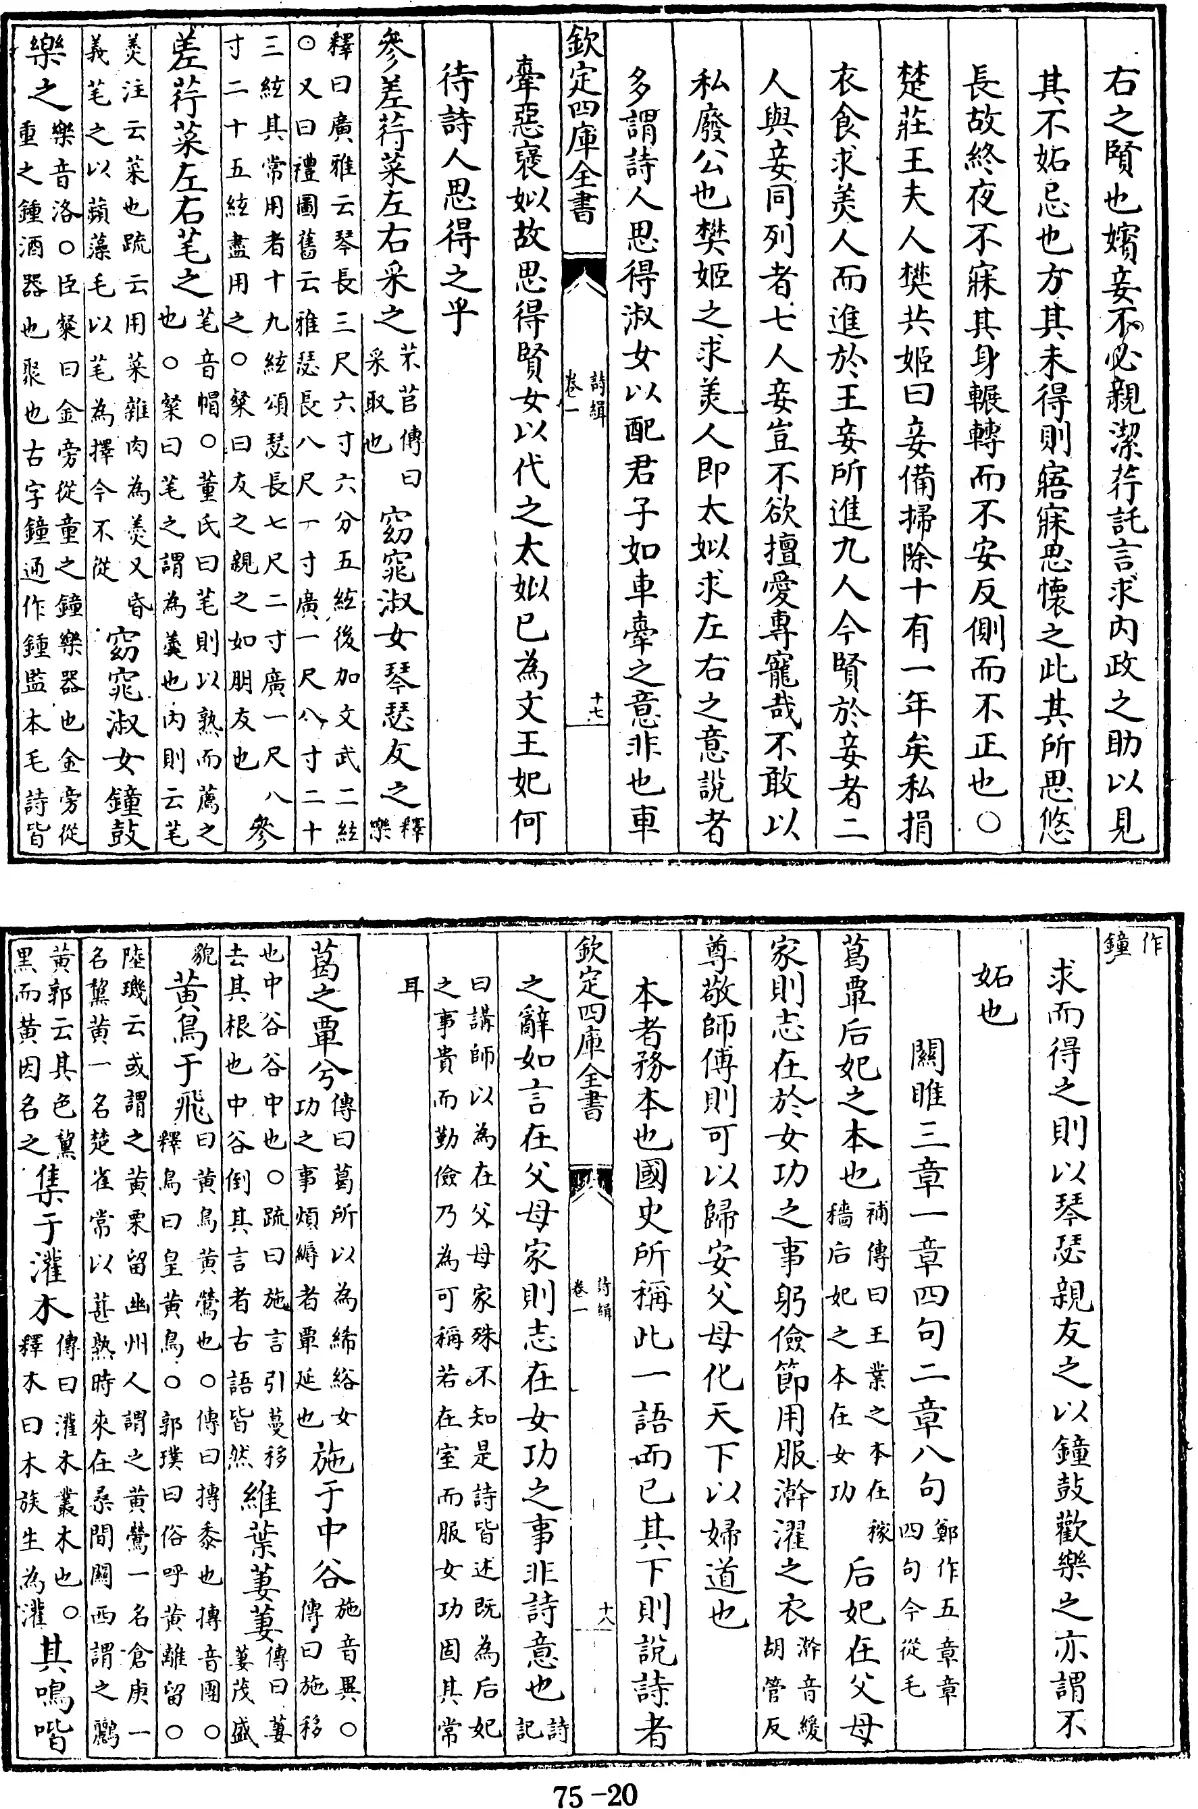 右之賢也嬪妾不必親潔荇託言求内政之助以見
其不妬忌也方其未得則寤寐思懷之此其所思悠
長故終夜不寐其身輾轉而不安反側而不正也○
楚莊王夫人樊共姬曰妾備掃除十有一年矣私捐
衣食求美人而進於王妾所進九人今賢於妾者二
人與妾同列者七人妾豈不欲擅愛專寵哉不敢以
私廢公也樊姬之求美人即太姒求左右之意說者
多謂詩人思得淑女以配君子如車舝之意非也車
欽定四庫全書
詩緝
卷一
十七
舝惡褒姒故思得賢女以代之太姒已為文王妃何
待詩人思得之乎
參差荇菜左右采之
芣苢傳曰
采取也
窈窕淑女琴瑟友之
釋
樂
釋曰廣雅云琴長三尺六寸六分五絃後加文武二絃
○又曰禮圖舊云雅瑟長八尺一寸廣一尺八寸二十
三絃其常用者十九絃頌瑟長七尺二寸廣一尺八
寸二十五絃盡用之○粲曰友之親之如朋友也
參
差荇菜左右芼之
芼音帽○董氏曰芼則以熟而薦之
也○粲曰芼之謂為羹也内則云芼
羹注云菜也疏云用菜雜肉為羹又昏
義芼之以蘋藻毛以芼為擇今不從
窈窕淑女鐘鼓
樂之
樂音洛○臣粲曰金旁從童之鐘樂器也金旁從
重之鍾酒器也聚也古字鐘通作鍾監本毛詩皆
作
鐘
求而得之則以琴瑟親友之以鐘鼓歡樂之亦謂不
妬也
關雎三章一章四句二章八句
鄭作五章章
四句今從毛
葛覃后妃之本也
補傳曰王業之本在稼
穡后妃之本在女功
后妃在父母
家則志在於女功之事躬儉節用服澣濯之衣
澣音緩
胡管反
尊敬師傅則可以歸安父母化天下以婦道也
本者務本也國史所稱此一語而已其下則說詩者
欽定四庫全書
詩緝
卷一
十八
之辭如言在父母家則志在女功之事非詩意也
詩
記
曰講師以為在父母家殊不知是詩皆述既為后妃
之事貴而勤儉乃為可稱若在室而服女功固其常
耳
葛之覃兮
傳曰葛所以為絺綌女
功之事煩縟者覃延也
施于中谷
施音異○
傳曰施移
也中谷谷中也○疏曰施言引蔓移
去其根也中谷倒其言者古語皆然
維葉萋萋
傳曰萋
萋茂盛
貌
黃鳥于飛
曰黃鳥黃鶯也○傳曰摶黍也摶音團○
釋鳥曰皇黃鳥○郭璞曰俗呼黃離留○
陸璣云或謂之黃栗留幽州人謂之黃鶯一名倉庚一
名鵹黃一名楚雀常以葚熟時來在桑間關西謂之鸝
黃郭云其色黧
黑而黃因名之
集于灌木
傳曰灌木叢木也○
釋木曰木族生為灌
其鳴喈
75-20